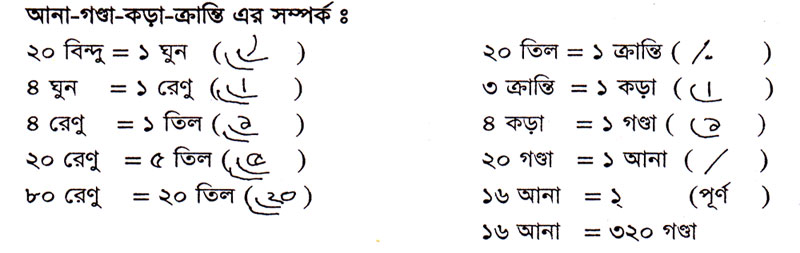 আনা-গণ্ডা-কড়া-ক্রান্তি এর সম্পর্ক ঃ
২০ বিন্দু = ১ ঘুন ( )
৪ ঘুন = ১ রেণু ( )
৪ রেণু = ১ তিল ( )
২০ রেণু = ৫ তিল ( )
৮০ রেণু = ২০ তিল ( )
২০ তিল = ১ ক্রান্তি ( )
৩ ক্রান্তি = ১ কড়া ( )
৪ কড়া = ১ গণ্ডা ( )
২০ গণ্ডা = ১ আনা ( / )
১৬ আনা = ১ (পূর্ণ )
১৬ আনা = ৩২০ গণ্ডা